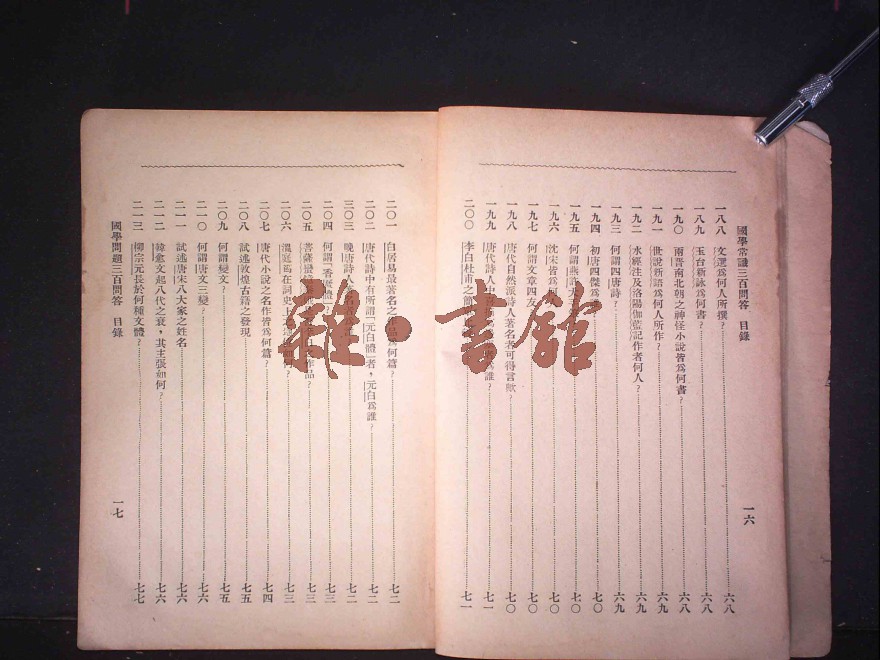 國學常識三百問答 目錄
一六
一八八 文選爲何人所撰? 六八
一八九 玉台新詠爲何書? 六八
一九〇 兩晋南北朝之神怪小說皆爲何書? 六八
一九一 世說新語爲何人所作? 六九
一九二 水經注及洛陽伽藍記作者何人? 六九
一九三 何謂四唐詩? 六九
一九四 初唐四傑爲 七〇
一九五 何謂燕許大 七〇
一九六 沈宋皆爲何 七〇
一九七 何謂文章四友 七〇
一九八 唐代自然派詩人著名者可得言歟? 七〇
一九九 唐代詩人 爲誰? 七一
二〇〇 李白杜甫之簡 七一
二〇一 白居易最著名之作品爲何篇? 七二
二〇二 唐代詩中有所謂「元白體」者,元白爲誰? 七二
三〇三 晚唐詩人 七二
二〇四 何謂「香奩體」 七三
二〇五 菩薩蠻 作品? 七三
二〇六 溫庭筠在詞史上之 如何? 七三
二〇七 唐代小說之名作皆爲何篇? 七四
二〇八 試述敦煌古籍之發現 七五
二〇九 何謂變文? 七五
二一〇 何謂唐文三變? 七六
二一一 試述唐宋八大家之姓名 七六
二一二 韓愈文起八代之衰,其主張如何? 七六
二一三 柳宗元長於何種文體? 七七
國學問題三百問答 目錄
一七
雜·書館